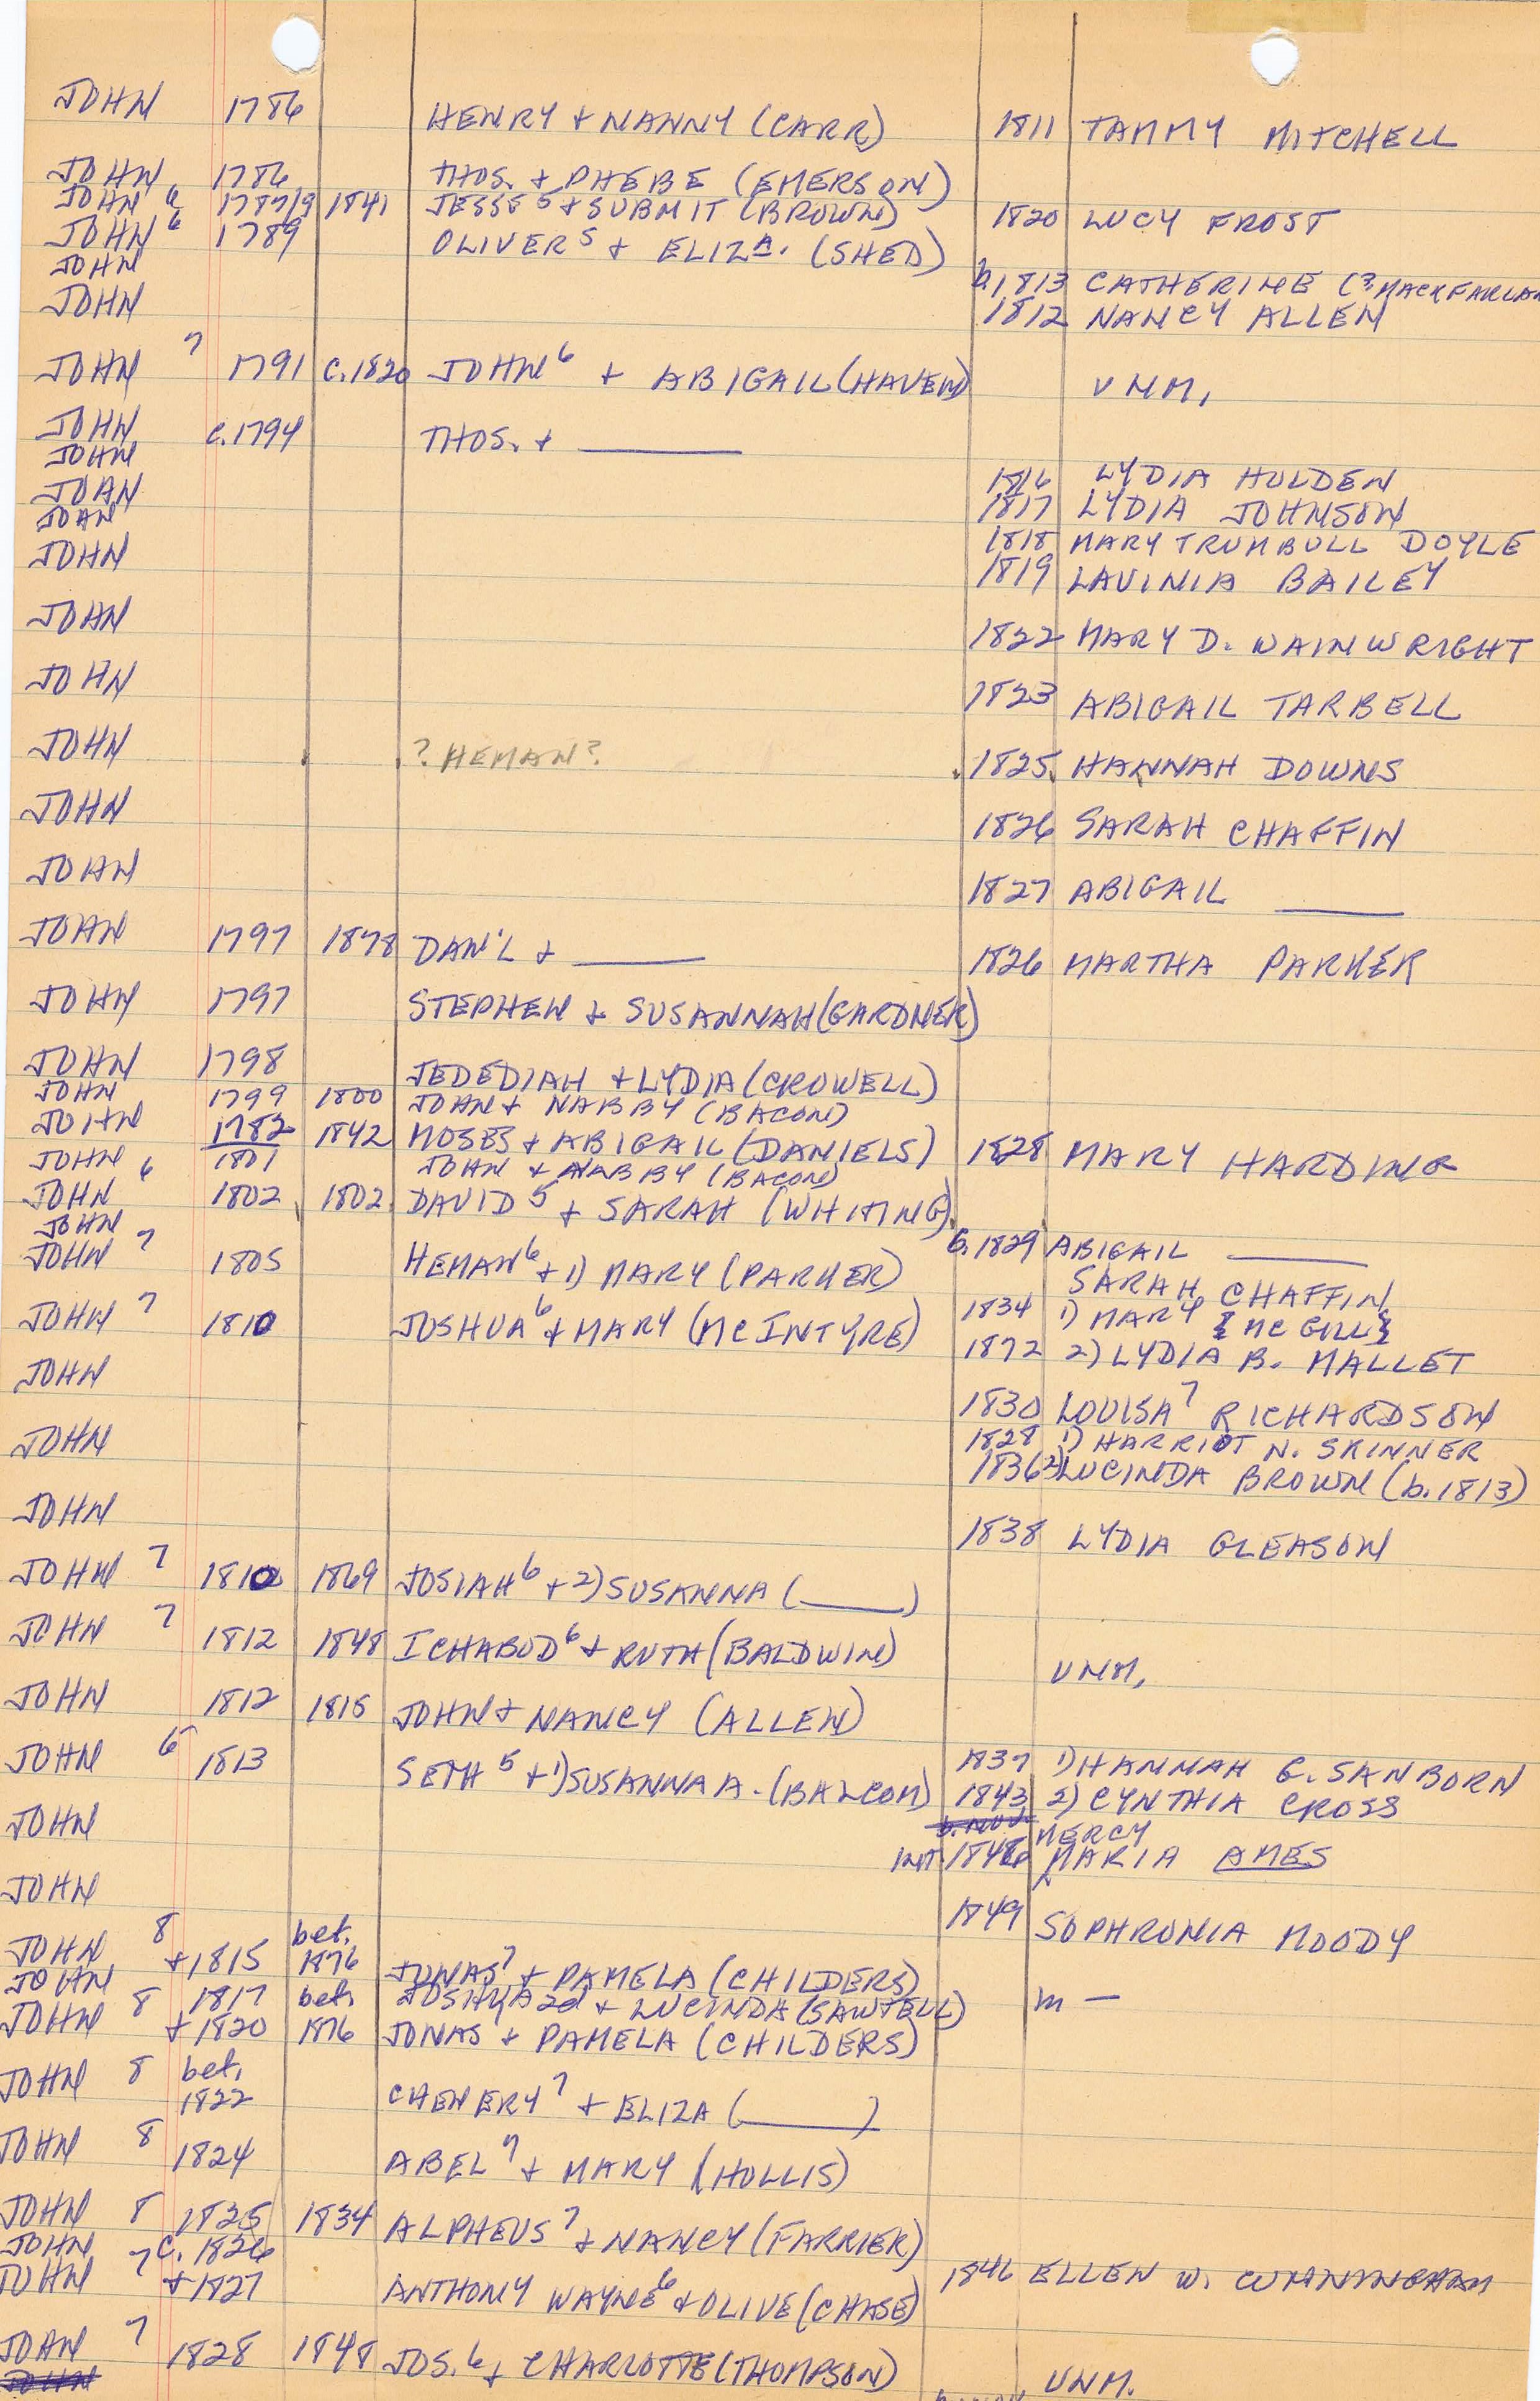 JOHN 1786 HENRY + NANNY (CARR) 1811 TAMMY MITCHELL
JOHN 1786 THOS. + PHEBE (EMERSON)
JOHN 6 1787/9 1841 JESSE 5 + SUBMIT (BROWN) 1820 LUCY FROST
JOHN 6 1789 OLIVER 5 + ELIZA. (SHED)
JOHN b. 1813 CATHERINE (? MACKFARLAN
JOHN 1812 NANCY ALLEN
JOHN 7 1791 c.1820 JOHN 6 + ABIGAIL (HAVEN) UNM.
JOHN c.1794 THOS. + ____
JOHN 1816 LYDIA HOLDEN
JOHN 1817 LYDIA JOHNSON
JOHN 1818 MARY TRUMBULL DOYLE
JOHN 1819 LAVINIA BAILEY
JOHN 1822 MARY D. WAINWRIGHT
JOHN 1823 ABIGAIL TARBELL
JOHN ? HEMAN? 1825 HANNAH DOWNS
JOHN 1826 SARAH CHAFFIN
JOHN 1827 ABIGAIL ____
JOHN 1797 1878 DAN'L + ____ 1826 MARTHA PARKER
JOHN 1797 STEPHEN + SUSANNAH (GARDNER)
JOHN 1798 JEDEDIAH + LYDIA (CROWELL)
JOHN 1799 1800 JOHN + NABBY (BACON)
JOHN 1782 1842 MOSES + ABIGAIL (DANIELS) 1828 MARY HARDING
JOHN 1801 JOHN + NABBY (BACON)
JOHN 6 1802 1802 DAVID 5 + SARAH (WHITING)
JOHN b. 1829 ABIGAIL ____
JOHN 7 1805 HEMAN 6 + 1) MARY (PARKER) SARAH CHAFFIN
JOHN 7 1810 JOSHUA 6 + MARY (MCINTYRE) 1834 1) MARY {MC GILL}
1872 2) LYDIA B. MALLET
JOHN 1830 LOUISA 7 RICHARDSON
JOHN 1828 1) HARRIOT N. SKINNER
1836 2) LUCINDA BROWN (b. 1813)
JOHN 1838 LYDIA GLEASON
JOHN 7 1810 1869 JOSIAH 6 + 2) SUSANNA (____)
JOHN 7 1812 1848 ICHABOD 6 + RUTH (BALDWIN) UNM.
JOHN 1812 1815 JOHN + NANCY (ALLEN)
JOHN 6 1813 SETH 5 + 1) SUSANNA A. (BALCOM) 1837 1) HANNAH G. SANBORN
1843 2) CYNTHIA CROSS
JOHN MERCY
INT. 1846 MARIA AMES
JOHN 1849 SOPHRONIA MOODY
JOHN 8 +1815 bet. 1876 JONAS 7 + PAMELA (CHILDERS)
JOHN 1817 JOSHUA 2d + LUCINDA (SAWTELL) m —
JOHN 8 +1820 bet. 1876 JONAS + PAMELA (CHILDERS)
JOHN 8 bet. 1822 CHENERY 7 + ELIZA (____)
JOHN 8 1824 ABEL 7 + MARY (HOLLIS)
JOHN 8 1825 1834 ALPHEUS 7 + NANCY (FARRIER)
JOHN c. 1826 1846 ELLEN W. CUNNINGHAM
JOHN 7 +1827 ANTHONY WAYNE 6 + OLIVE (CHASE)
JOHN 7 1828 1848 JOS. 6 + CHARLOTTE (THOMPSON) UNM.
JOHN